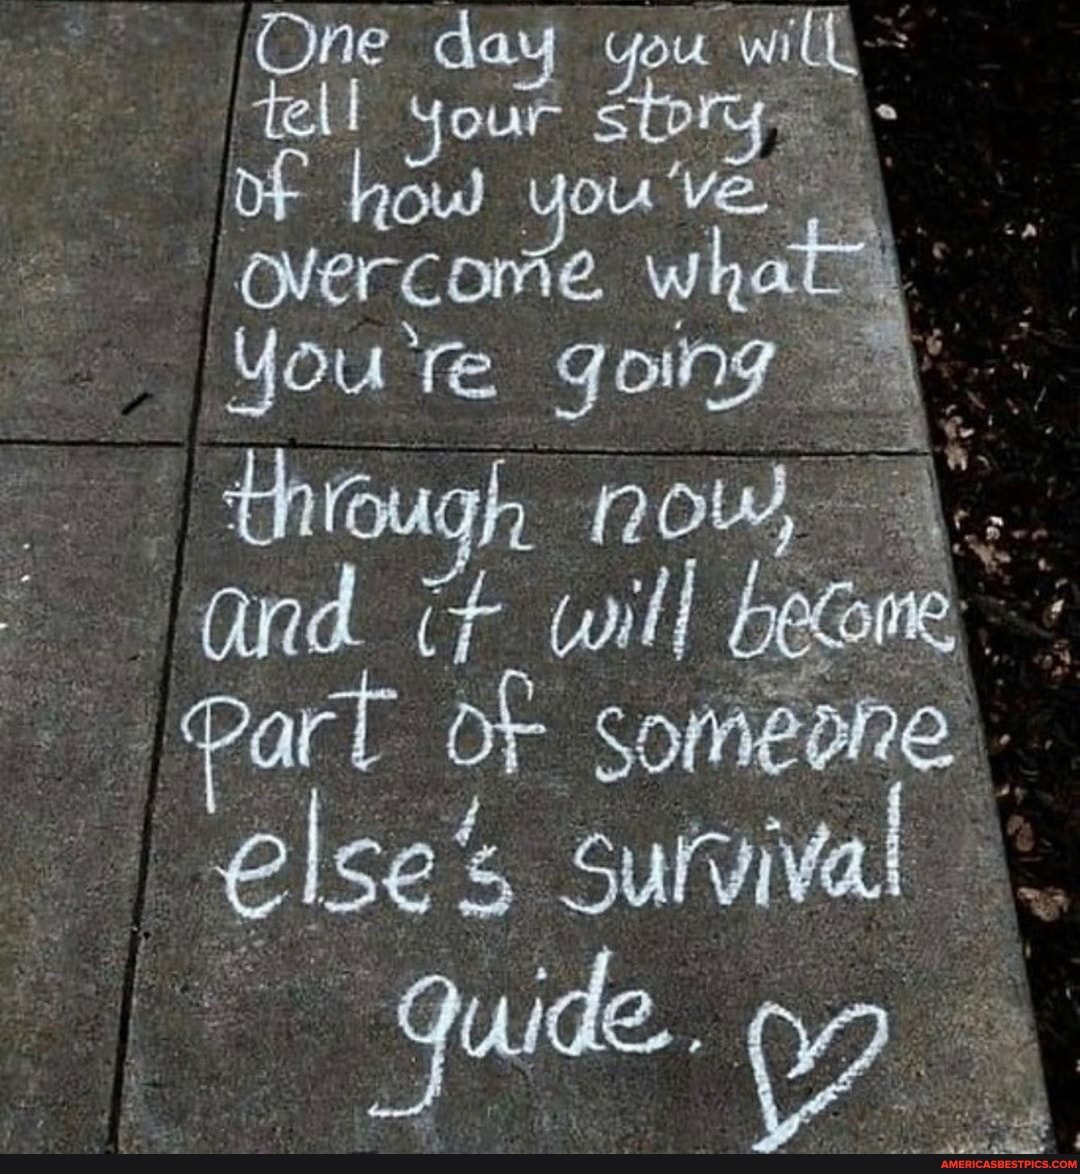 One day you will
tell your story
of how you've
overcome what
you're going
through now,
and it will become
part of someone
else's survival
guide.
AMERICASBESTPICS.COM